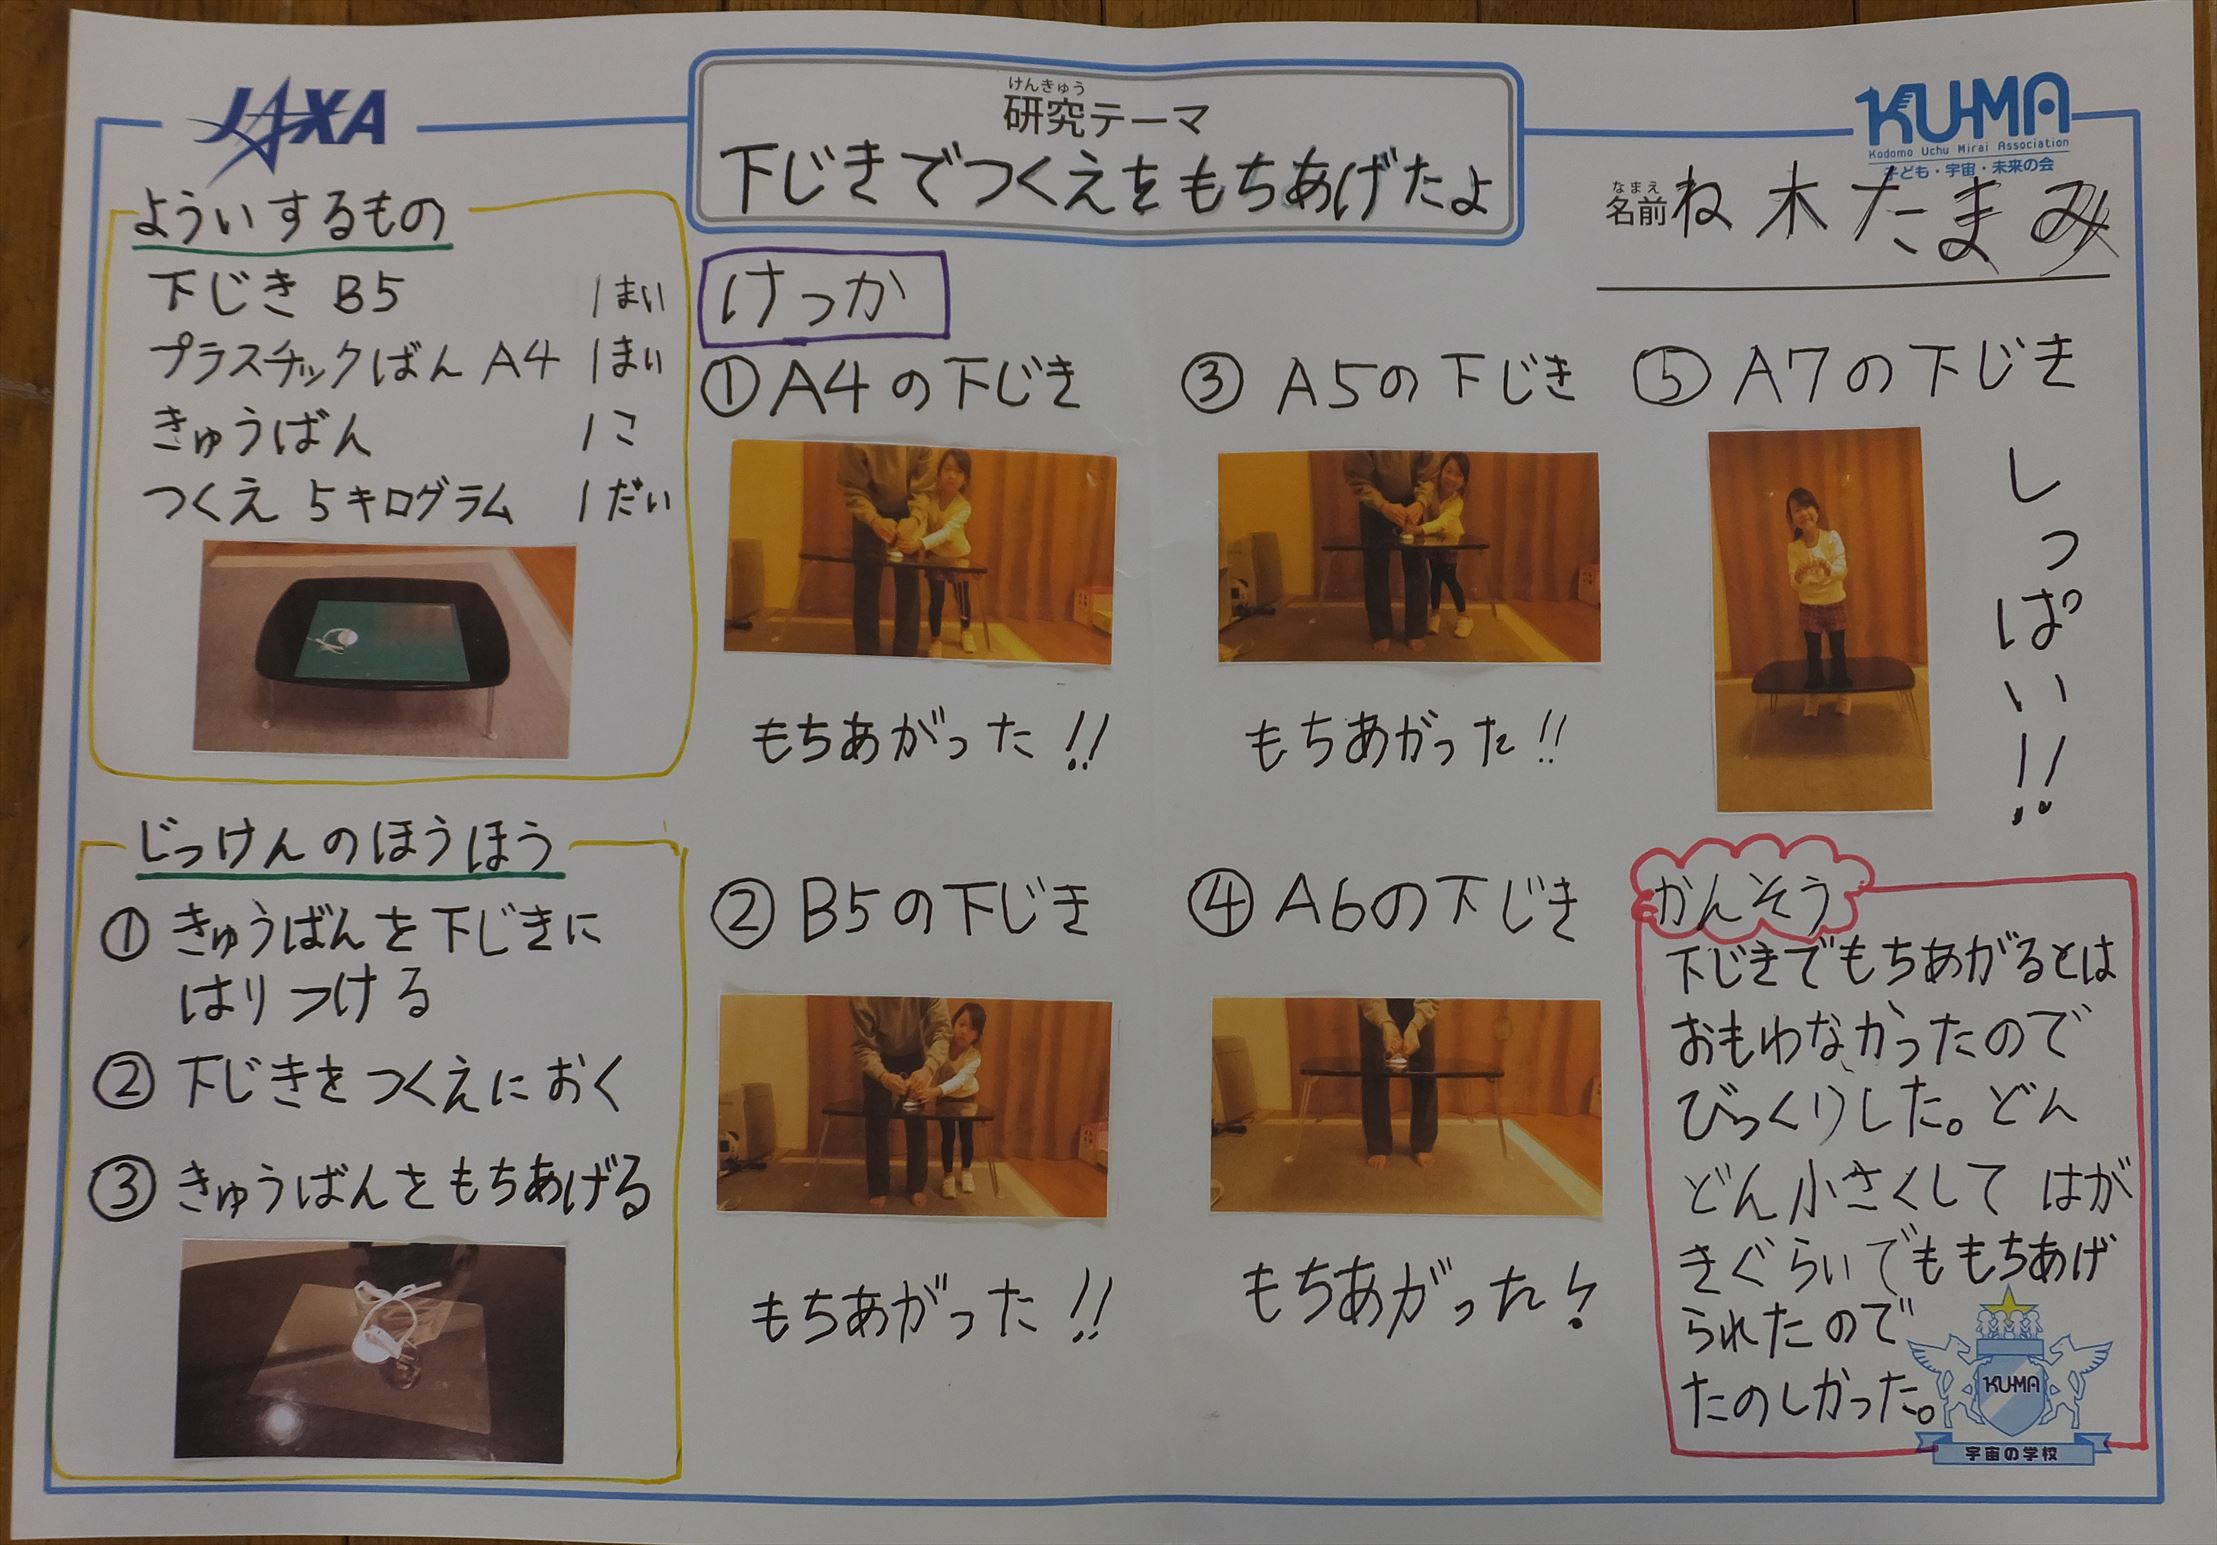 JAXA
けんきゅう
研究テーマ
下じきでつくえをもちあげたよ
KU-MA
Kodomo Uchu Mirai Association
子ども・宇宙・未来の会
なまえ
名前 ね木たまみ
よういするもの
下じき B5 1まい
プラスチックばん A4 1まい
きゅうばん 1こ
つくえ 5キログラム 1だい
じっけんのほうほう
① きゅうばんを下じきに
はりつける
② 下じきをつくえにおく
③ きゅうばんをもちあげる
けっか
① A4の下じき
もちあがった!!
② B5の下じき
もちあがった!!
③ A5の下じき
もちあがった!!
④ A6の下じき
もちあがった!
⑤ A7の下じき
しっぱい!!
かんそう
下じきでもちあがるとは
おもわなかったので
びっくりした。どん
どん小さくして はが
きぐらいでももちあげ
られたので
たのしかった。
KU-MA
宇宙の学校